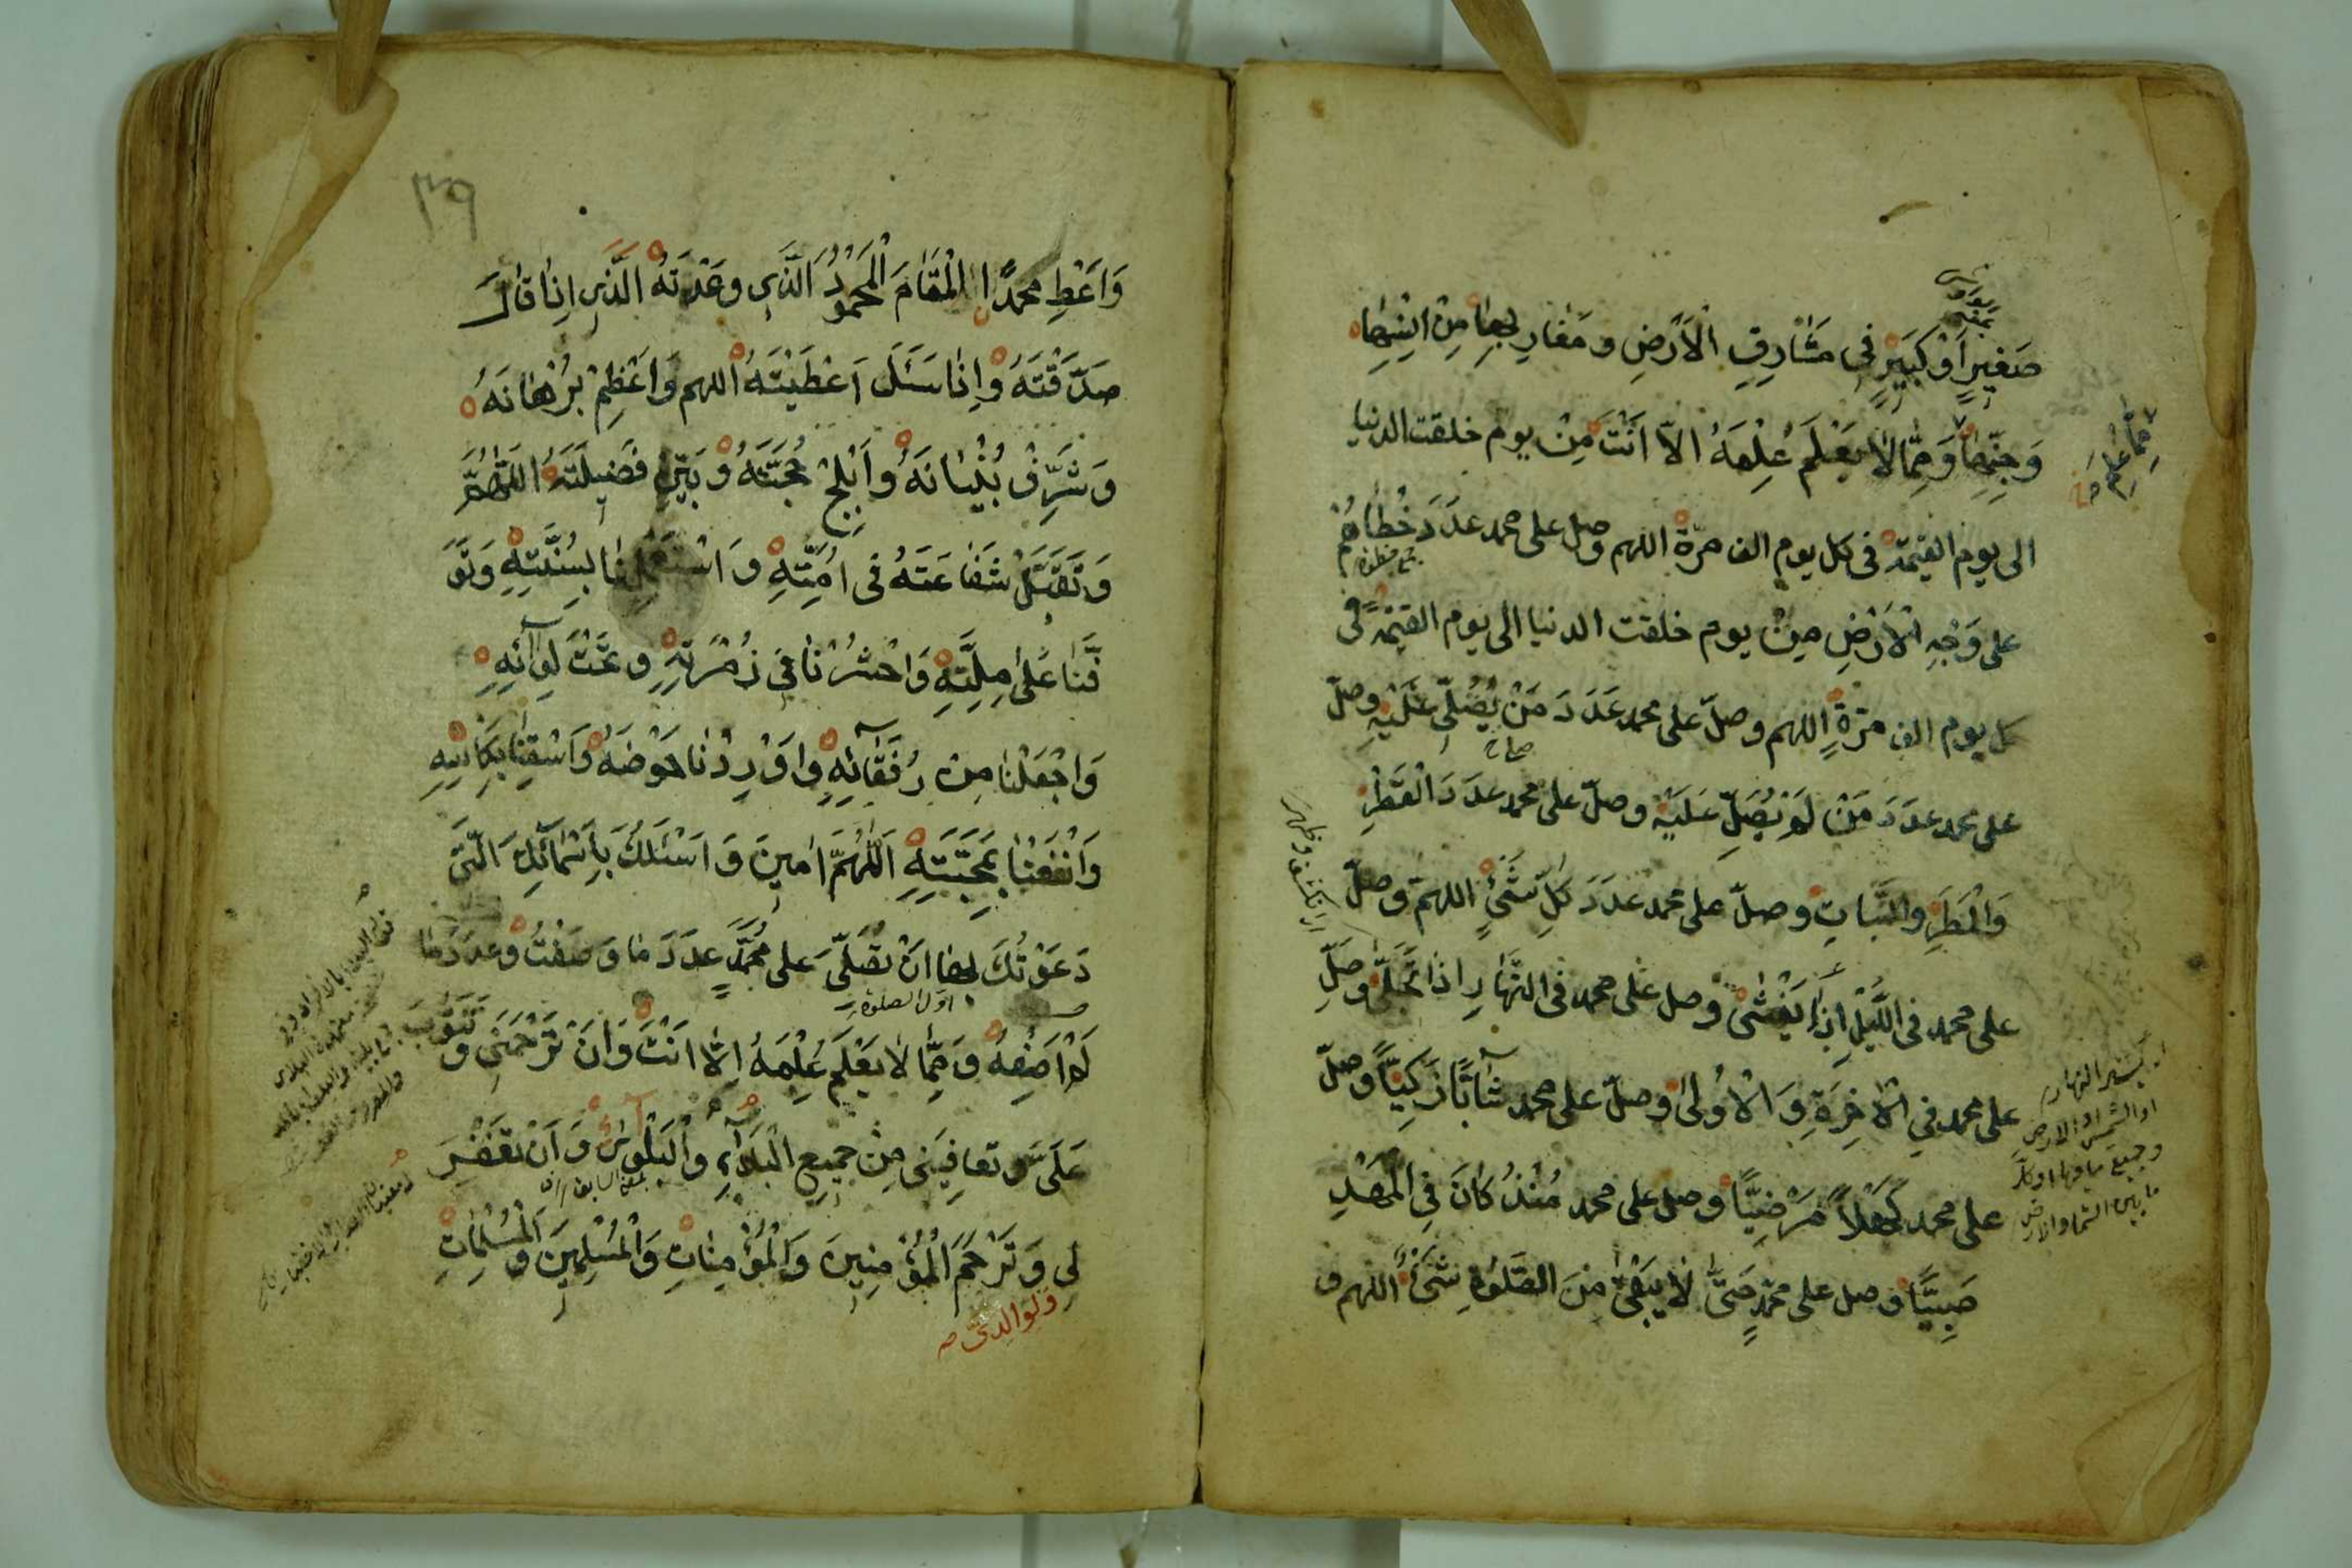 صَغِيرٍ اَوْ كَبِيرٍ فِى مَشَارِقِ الْاَرْضِ وَمَغَارِبِهَا مِنْ اِنْسِهَا
وَجِنِّهَا وَمِمَّا لَا يَعْلَمُ عِلْمَهُ اِلَّا اَنْتَ مِنْ يوم خلقت الدنيا
الى يوم القيمة فى كل يوم الف مرّة اللهم وصل على محمد عَدَدَ خُطَاهُمْ
على وَجْهِ الْاَرْضِ مِنْ يوم خلقت الدنيا الى يوم القيمة فى
كل يوم الف مَرَّةٍ اللهم وصلّ على محمد عَدَدَ مَنْ يُصَلِّى عَلَيْهِ وصلّ
على محمد عدَدَ مَنْ لَمْ يُصَلِّ عَلَيْهِ وصلّ على محمد عدَدَ الْقَطْرِ
وَالْمَطَرِ والنَّبَاتِ وصلّ على محمد عدَدَ كُلِّ شَىْءٍ اللهم وصلّ
على محمد فى اللَّيْلِ اِذَا يَغْشَى وصل على محمد فى النَّهَارِ اِذَا تَجَلَّى وصَلِّ
على محمد فِي الْاٰخِرَةِ وَالْاُولَى وصلّ على محمد شَآبًّا زَكِيًّا وصلّ
على محمد كَهْلاً مَرْضِيًّا وصل على محمد مُنْذُ كَانَ فِي الْمَهْدِ
صَبِيًّا وصل على محمّدٍ حَتَّى لَا يَبْقَى مِنَ الصَّلٰوةِ شَىْءٌ اللهم و
او الشمس او الارض
وجميع ما فيها او كلّ
ما بين السماء والارض
٣٩
وَاَعْطِ محمدًا الْمَقَامَ الْمَحْمُودَ الَّذِى وعَدْتَهُ الَّذِى اِذَا قَالَ
صَدَّقْتَهُ وَاِذَا سَئَلَ اَعْطَيْتَهُ اللهم وَاَعْظِمْ بُرْهَانَهُ
وَشَرِّفْ بُنْيَانَهُ وَاَبْلِجْ حُجَّتَهُ وَبَيِّنْ فَضِيلَتَهُ اَللّٰهُمَّ
وَتَقَبَّلْ شَفَاعَتَهُ فى اُمَّتِهِ وَاسْتَعْمِلْنَا بِسُنَّتِهِ وَتَوَ
فَّنَا عَلَى مِلَّتِهِ وَاحْشُرْنَا فِى زُمْرَتِهِ وتَحْتَ لِوَآئِهِ
وَاجْعَلْنَا مِنْ رُفَقَآئِهِ وَاَوْرِدْنَا حَوْضَهُ وَاسْقِنَا بِكَاْسِهِ
وَانْفَعْنَا بِمَحَبَّتِهِ اَللّٰهُمَّ اٰمِينَ وَاَسْئَلُكَ بِاَسْمَآئِكَ الَّتِى
دَعَوْتُكَ بِهَا اَنْ تُصَلِّىَ على مُحَمَّدٍ عدَدَ مَا وَصَفْتُ وعدَدَ مَا
لَمْ اَصِفْهُ وَمِمَّا لَا يَعْلَمُ عِلْمَهُ اِلَّا اَنْتَ وَاَنْ تَرْحَمَنِى وَتَتُوبَ
عَلَىَّ وتعافِيَنِى مِنْ جَمِيعِ الْبَلَآءِ وَالْبَلْوٰى وَاَنْ تَغْفِرَ
لِى وَتَرْحَمَ الْمُؤْمِنِينَ وَالْمُؤْمِنَاتِ وَالْمُسْلِمِينَ وَالْمُسْلِمَاتِ
ولوالدىّ